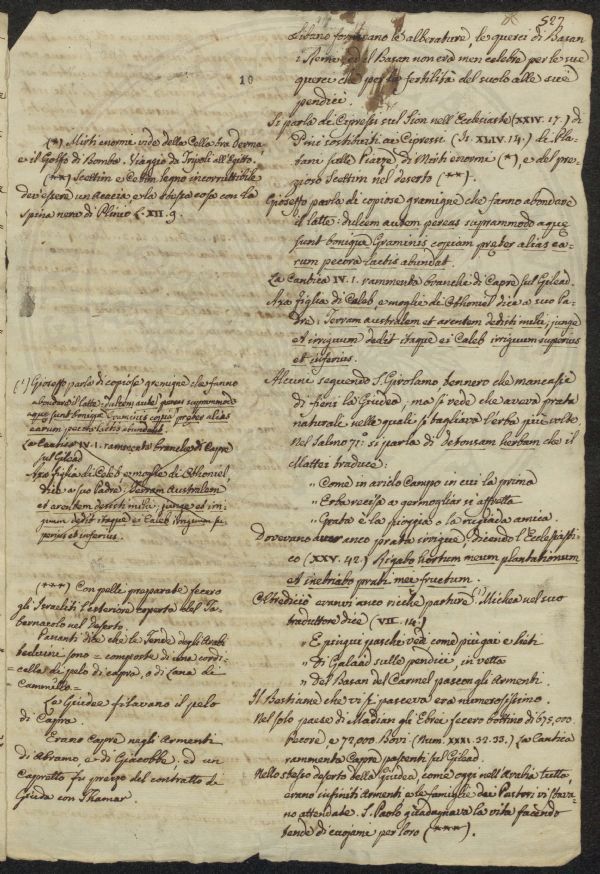 527
18
Libano fornirano le alberature, le querci di Basan
i Remi, ed il Basan non era men celebre per le sue
querci che per la fertilità del suolo alle sue
pendici.
Si parla di Cipressi sul Sion nell'Ecclesiaste (XXIV. 17.) di
Pini sostituiti ai Cipressi (Is. XLIV. 14.) di Pla-
tani sulle Piazze, di Mirti enormi (*) e del pre-
zioso Scettim nel deserto (**).
Gioseffo parla di copiose gramigne che fanno abondare
il latte: dulcem autem pereas suprammodo aque
sunt bonique Graminis copiam preter alias ea-
rum pecora lactis abundat.
La Cantica IV. 1. rammenta branchi di Capre sul Gilead.
Axa figlia di Caleb, e moglie di Othoniel dice a suo Pa-
dre: Terram australem et arentem dedisti mihi, junge
et irriguum dedit itaque ei Caleb irriguum superius
et inferius.
Alcuni seguendo S. Girolamo tennero che mancasse
di fieni la Giudea, ma si vede che aveva prata
naturali nelle quali si tagliava l'erba più volte.
Nel Salmo 71: si parla di detonsam herbam che il
Mattei traduce:
" Come in arido Campo in cui la prima
" Erba recisa a germogliar si affretta
" Grata è la pioggia o la rugiada amica.
Dovevano aver anco prata irrigue dicendo l'Ecclesiasti-
co (XXV. 42.) Rigabo hortum meum plantationum
et inebriabo prati mei fructum.
Oltrediciò eranvi anco ricche pasture (1) Michea nel suo
traduttore dice (VII. 14.)
" E pingui paschi vedi come piagge e lieti
" Di Galaad sulle pendici, in vetta
" Del Basan del Carmel pascon gli Armenti.
Il Bestiame che vi si pasceva era numerosissimo.
Nel solo paese di Madian gli Ebrei fecero bottino di 675,000
Pecore, e 72,000 Bovi (Num. XXXI. 32. 33.) La Cantica
rammenta Capre pascenti sul Gilead.
Nello stesso deserto della Giudea, come oggi nell'Arabia tutta,
erano infiniti Armenti e le famiglie dei Pastori vi stava-
no attendate. S. Paolo guadagnava la vita facendo
tende di cuojame per loro (***).
(*) Mirti enormi vide della Cella tra Derna
e il Golfo di Bomba. Viaggio da Tripoli all'Egitto.
(**) Scettim e Cetim legno incorruttibile
dev'essere un'Acacia e la stessa cosa con la
Spina nera di Plinio L. XII. 9.
(1) Gioseffo parla di copiose gramigne che fanno
abondare il latte: dulcem autem pereas suprammodo
aque sunt bonique Graminis copia preter alias
earum pecora lactis abundat.
La Cantica IV. 1. rammenta branchi di Capre
sul Gilead
Axa figlia di Caleb e moglie di Othoniel,
dice a suo Padre: Terram Australem
et arentem dedisti mihi, junge et irri-
guum dedit itaque ei Caleb irriguum su-
perius et inferius.
(***) Con pelli preparate fecero
gli Israeliti l'esteriore coperto del Ta-
bernacolo nel deserto.
Pananti dice che le Tende degli Arabi
beduini sono = composte di una cordi-
cella di pelo di capra, o di Lana di
Cammello =
Le Giudee filavano il pelo
di Capra.
Erano Capre negli Armenti
di Abramo, e di Giacobbe; ed un
Capretto fu prezzo del contratto di
Giuda con Thamar.